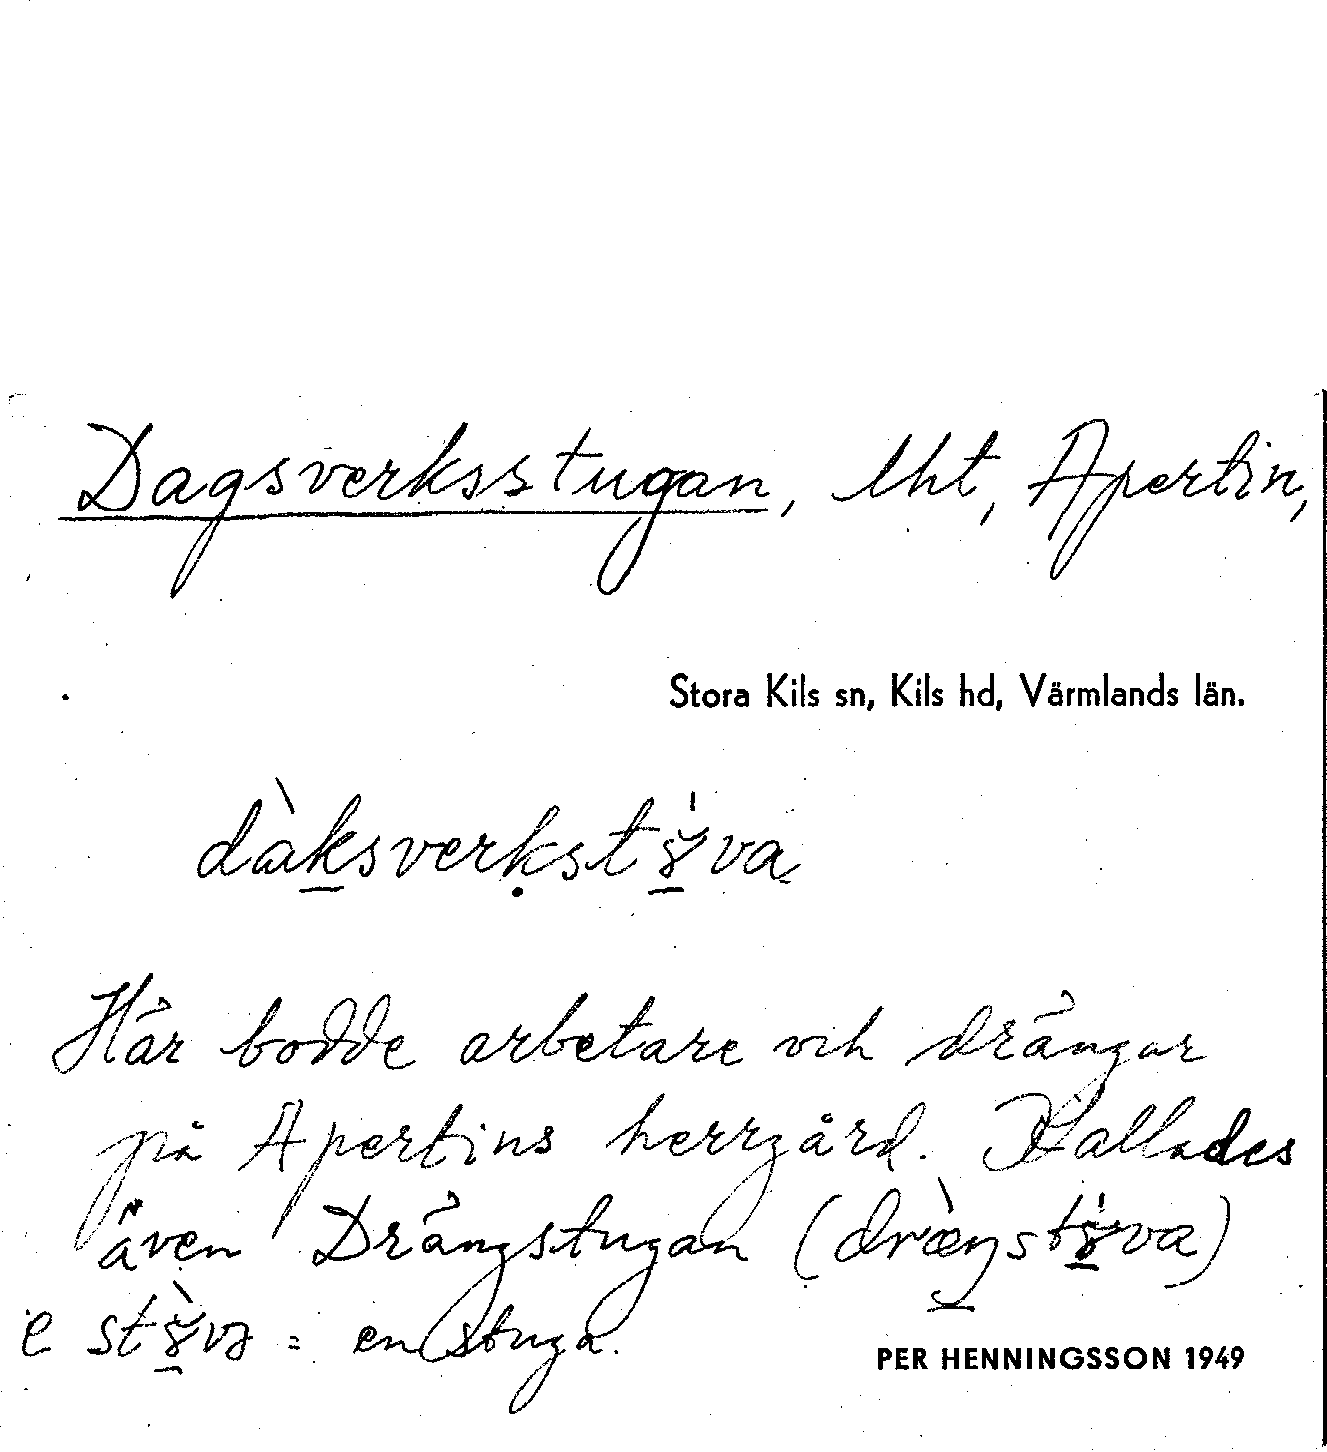 Dagsverksstugan, lht, Apertin,
Stora Kils sn, Kils hd, Värmlands län.
dàksverkstɣ̆va
Här bodde arbetare och drängar
på Apertins herrgård. Kallades
även Drängstugan (dræ̀ŋstɣ̆va)
e stɣ̆̀və = en stuga.
PER HENNINGSSON 1949